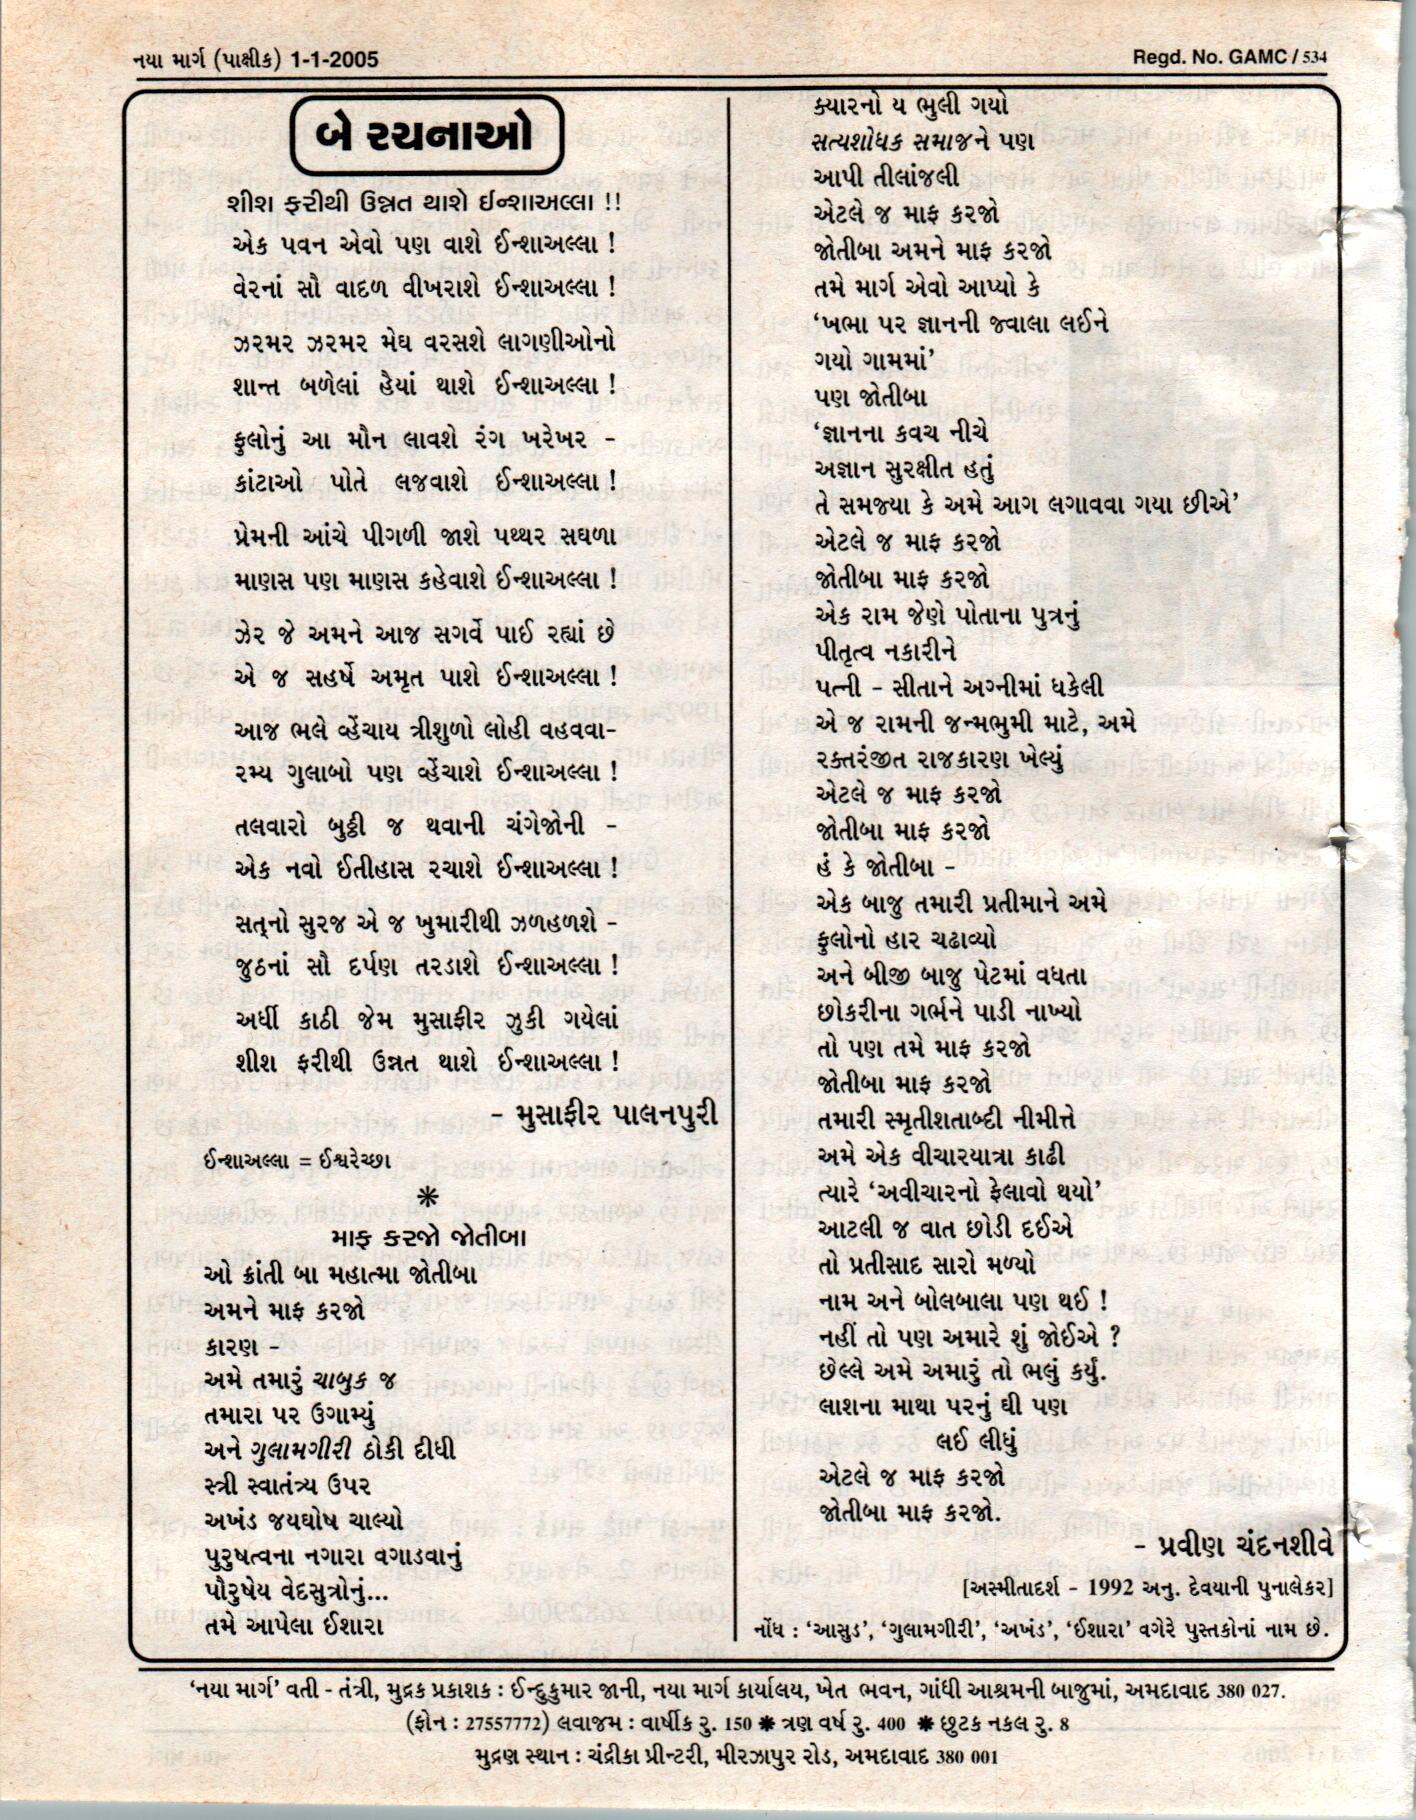 નયા માર્ગ (પાક્ષીક) 1-1-2005
Regd. No. GAMC / 534
બે રચનાઓ
શીશ ફરીથી ઉન્નત થાશે ઈન્શાઅલ્લા !!
એક પવન એવો પણ વાશે ઈન્શાઅલ્લા !
વેરનાં સૌ વાદળ વીખરાશે ઈન્શાઅલ્લા !
ઝરમર ઝરમર મેઘ વરસશે લાગણીઓનો
શાન્ત બળેલાં હૈયાં થાશે ઈન્શાઅલ્લા !
ફુલોનું આ મૌન લાવશે રંગ ખરેખર -
કાંટાઓ પોતે લજવાશે ઈન્શાઅલ્લા !
પ્રેમની આંચે પીગળી જાશે પથ્થર સઘળા
માણસ પણ માણસ કહેવાશે ઈન્શાઅલ્લા !
ઝેર જે અમને આજ સગર્વે પાઈ રહ્યાં છે
એ જ સહર્ષે અમૃત પાશે ઈન્શાઅલ્લા !
આજ ભલે વ્હેંચાય ત્રીશુળો લોહી વહવવા-
રમ્ય ગુલાબો પણ વ્હેંચાશે ઈન્શાઅલ્લા !
તલવારો બુઠ્ઠી જ થવાની ચંગેજોની -
એક નવો ઈતીહાસ રચાશે ઈન્શાઅલ્લા !
સત્‌નો સુરજ એ જ ખુમારીથી ઝળહળશે -
જુઠનાં સૌ દર્પણ તરડાશે ઈન્શાઅલ્લા !
અર્ધી કાઠી જેમ મુસાફીર ઝુકી ગયેલાં
શીશ ફરીથી ઉન્નત થાશે ઈન્શાઅલ્લા !
- મુસાફીર પાલનપુરી
ઈન્શાઅલ્લા = ઈશ્વરેચ્છા
*
માફ કરજો જોતીબા
ઓ ક્રાંતી બા મહાત્મા જોતીબા
અમને માફ કરજો
કારણ -
અમે તમારું ચાબુક જ
તમારા પર ઉગામ્યું
અને ગુલામગીરી ઠોકી દીધી
સ્ત્રી સ્વાતંત્ર્ય ઉપર
અખંડ જયઘોષ ચાલ્યો
પુરુષત્વના નગારા વગાડવાનું
પૌરુષેય વેદસુત્રોનું...
તમે આપેલા ઈશારા
ક્યારનો ય ભુલી ગયો
સત્યશોધક સમાજને પણ
આપી તીલાંજલી
એટલે જ માફ કરજો
જોતીબા અમને માફ કરજો
તમે માર્ગ એવો આપ્યો કે
‘ખભા પર જ્ઞાનની જ્વાલા લઈને
ગયો ગામમાં’
પણ જોતીબા
‘જ્ઞાનના કવચ નીચે
અજ્ઞાન સુરક્ષીત હતું
તે સમજ્યા કે અમે આગ લગાવવા ગયા છીએ’
એટલે જ માફ કરજો
જોતીબા માફ કરજો
એક રામ જેણે પોતાના પુત્રનું
પીતૃત્વ નકારીને
પત્ની - સીતાને અગ્નીમાં ધકેલી
એ જ રામની જન્મભુમી માટે, અમે
રક્તરંજીત રાજકારણ ખેલ્યું
એટલે જ માફ કરજો
જોતીબા માફ કરજો
હં કે જોતીબા -
એક બાજુ તમારી પ્રતીમાને અમે
ફુલોનો હાર ચઢાવ્યો
અને બીજી બાજુ પેટમાં વધતા
છોકરીના ગર્ભને પાડી નાખ્યો
તો પણ તમે માફ કરજો
જોતીબા માફ કરજો
તમારી સ્મૃતીશતાબ્દી નીમીત્તે
અમે એક વીચારયાત્રા કાઢી
ત્યારે ‘અવીચારનો ફેલાવો થયો’
આટલી જ વાત છોડી દઈએ
તો પ્રતીસાદ સારો મળ્યો
નામ અને બોલબાલા પણ થઈ !
નહીં તો પણ અમારે શું જોઈએ ?
છેલ્લે અમે અમારું તો ભલું કર્યું.
લાશના માથા પરનું ઘી પણ
લઈ લીધું
એટલે જ માફ કરજો
જોતીબા માફ કરજો.
- પ્રવીણ ચંદનશીવે
[અસ્મીતાદર્શ - 1992 અનુ. દેવયાની પુનાલેકર]
નોંધ : ‘આસુડ’, ‘ગુલામગીરી’, ‘અખંડ’, ‘ઈશારા’ વગેરે પુસ્તકોનાં નામ છે.
‘નયા માર્ગ’ વતી - તંત્રી, મુદ્રક પ્રકાશક : ઈન્દુકુમાર જાની, નયા માર્ગ કાર્યાલય, ખેત ભવન, ગાંધી આશ્રમની બાજુમાં, અમદાવાદ 380 027.
(ફોન : 27557772) લવાજમ : વાર્ષીક રુ. 150 * ત્રણ વર્ષ રુ. 400 * છુટક નકલ રુ. 8
મુદ્રણ સ્થાન : ચંદ્રીકા પ્રીન્ટરી, મીરઝાપુર રોડ, અમદાવાદ 380 001